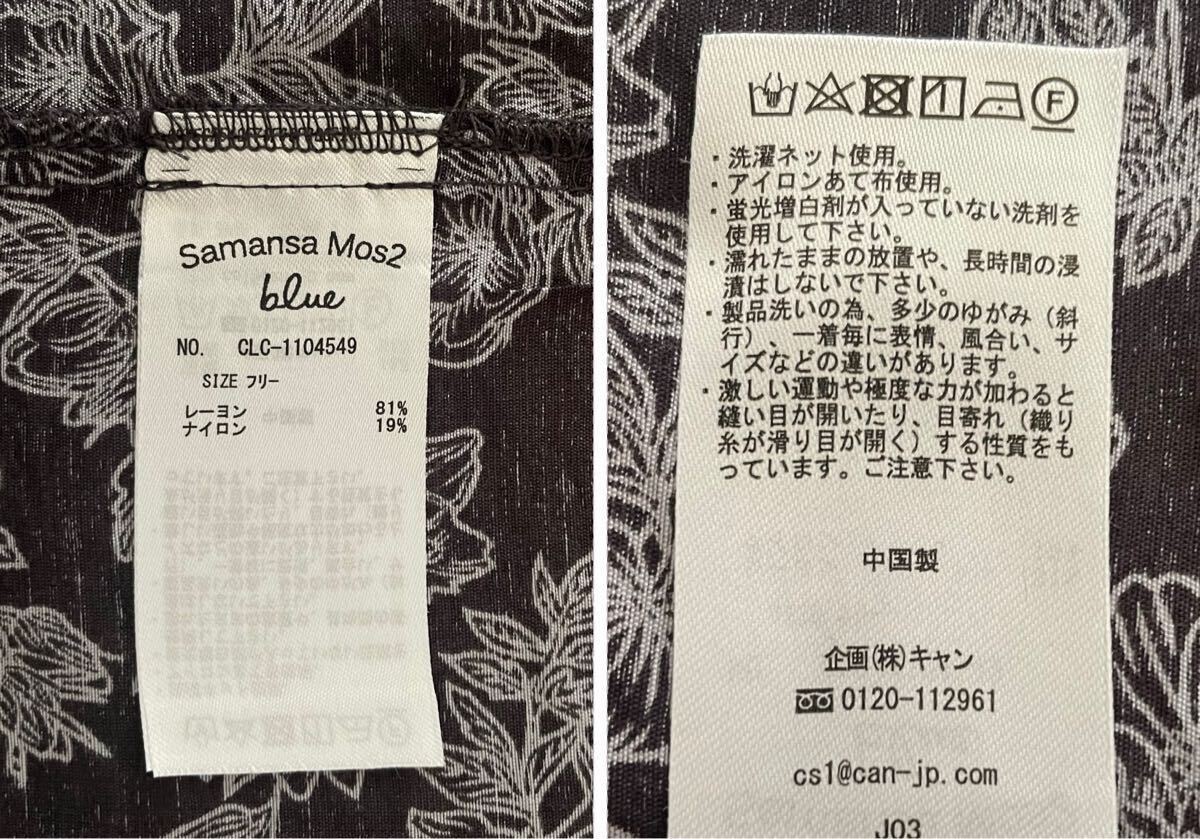 Samansa Mos2
blue
NO. CLC-1104549
SIZE フリー
レーヨン 81%
ナイロン 19%
F
・洗濯ネット使用。
・アイロンあて布使用。
・蛍光増白剤が入っていない洗剤を
使用して下さい。
・濡れたままの放置や、長時間の浸
漬はしないで下さい。
・製品洗いの為、多少のゆがみ（斜
行）、一着毎に表情、風合い、サ
イズなどの違いがあります。
・激しい運動や極度な力が加わると
縫い目が開いたり、目寄れ（織り
糸が滑り目が開く）する性質をも
っています。ご注意下さい。
中国製
企画(株)キャン
0120-112961
cs1@can-jp.com
J03